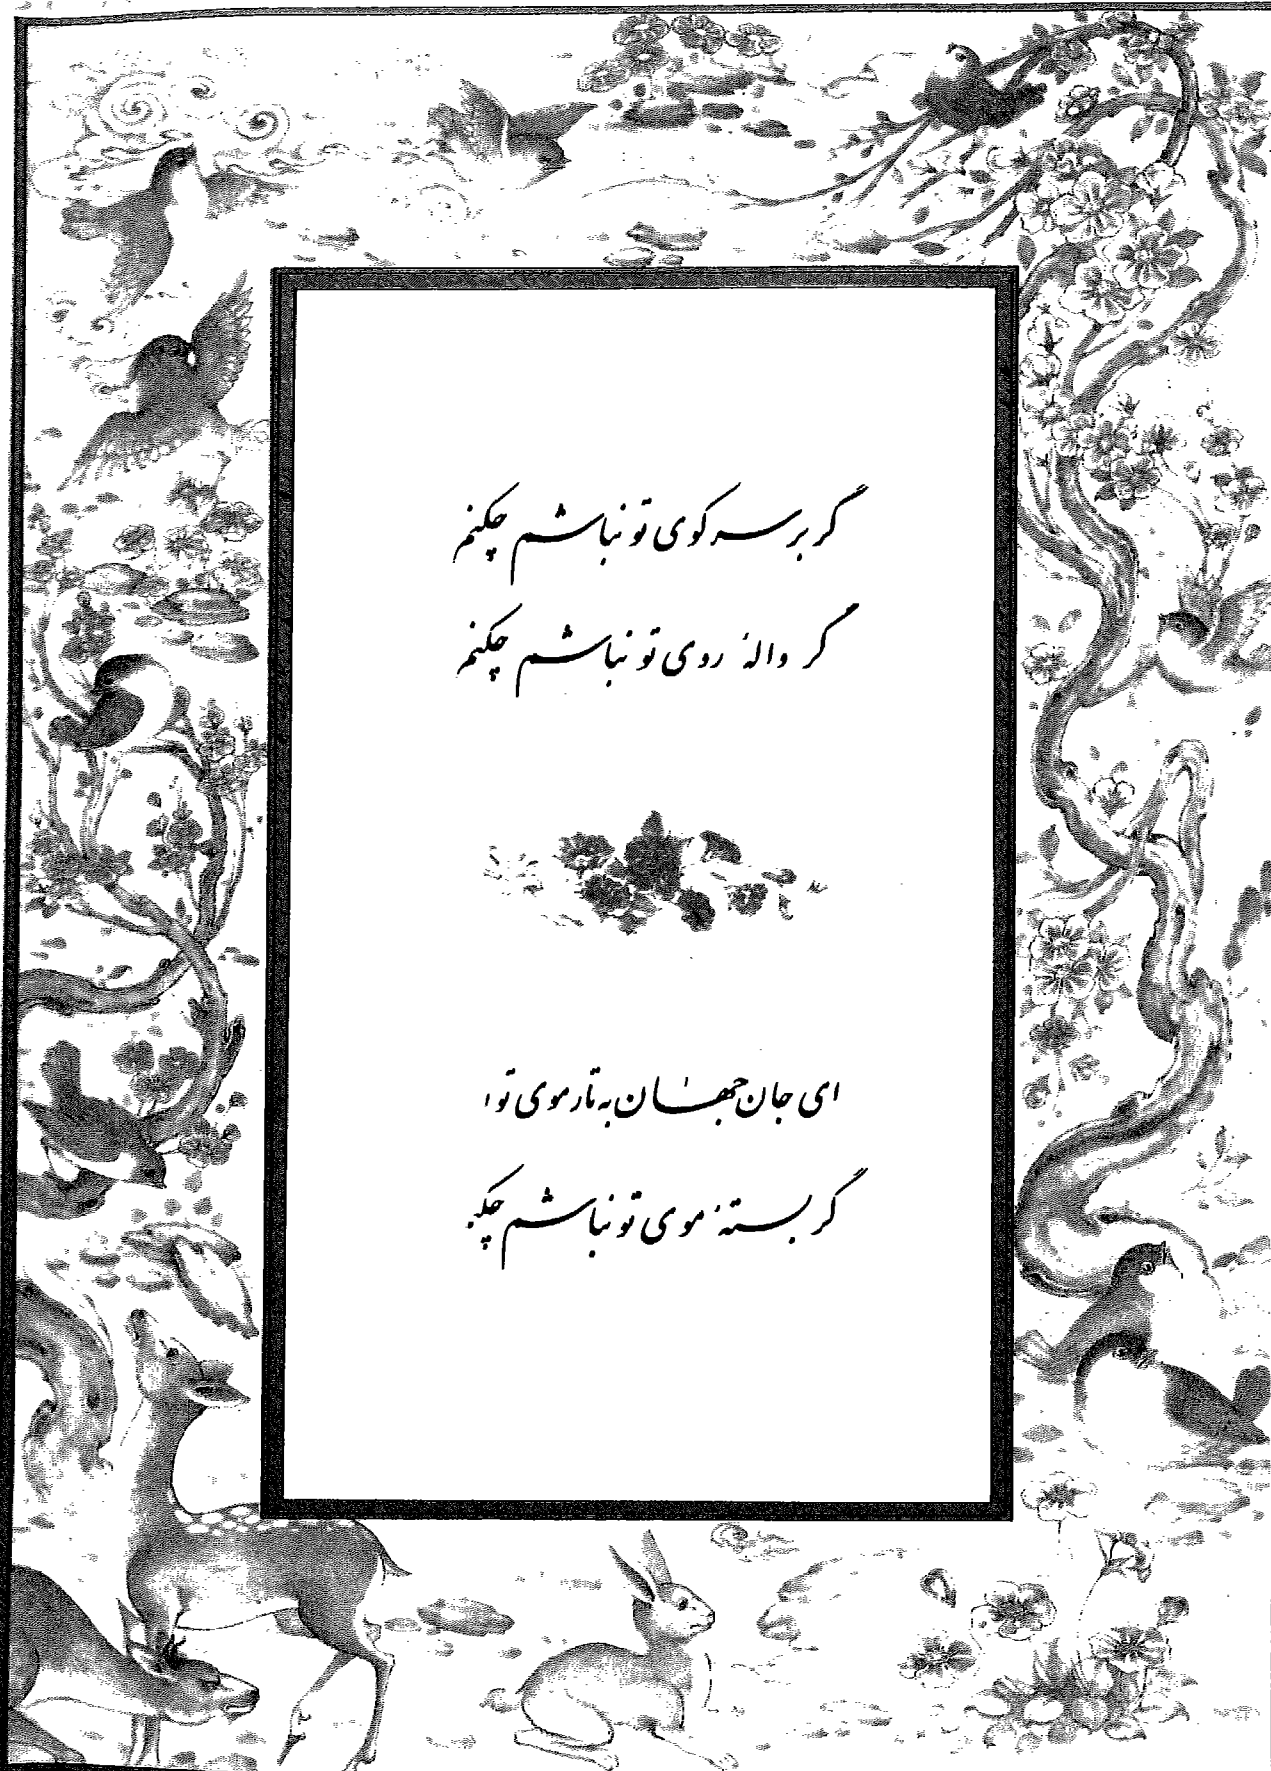 گر بر سر کوی تو نباشم چکنم
گر والهٔ روی تو نباشم چکنم
ای جان جهان به تار موی تو
گر بستهٔ موی تو نباشم